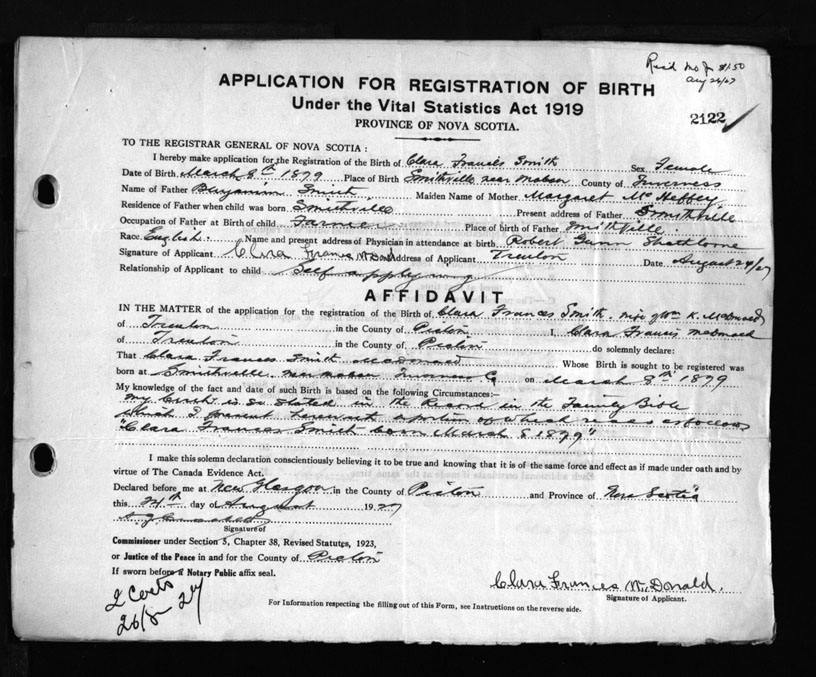 Rec'd $1.50
Aug 26/27
APPLICATION FOR REGISTRATION OF BIRTH
Under the Vital Statistics Act 1919
PROVINCE OF NOVA SCOTIA.
2122
TO THE REGISTRAR GENERAL OF NOVA SCOTIA :
I hereby make application for the Registration of the Birth of Clara Frances Smith Sex Female
Date of Birth March 8th 1879 Place of Birth Smithville near Mabou County of Inverness
Name of Father Benjamin Smith Maiden Name of Mother Margaret
Residence of Father when child was born Smithville Present address of Father Smithville
Occupation of Father at Birth of child Farmer Place of birth of Father Smithville
Race English. Name and present address of Physician in attendance at birth Robert Gunn
Signature of Applicant Clara Frances McDonald Address of Applicant Trenton Date August 24/27
Relationship of Applicant to child Self applying
AFFIDAVIT
IN THE MATTER of the application for the registration of the Birth of Clara Frances Smith. wife of Wm K. McDonald
of Trenton in the County of Pictou I, Clara Francis McDonald
of Trenton in the County of Pictou do solemnly declare:
That Clara Frances Smith MacDonald Whose Birth is sought to be registered was
born at Smithville near Mabou Inverness Co on March 8th 1879
My knowledge of the fact and date of such Birth is based on the following Circumstances:—
My birth is so stated in the Record in the Family Bible
which I present herewith a portion of which reads as follows
"Clara Frances Smith born March 8 1879"
I make this solemn declaration conscientiously believing it to be true and knowing that it is of the same force and effect as if made under oath and by
virtue of The Canada Evidence Act.
Declared before me at New Glasgow in the County of Pictou and Province of Nova Scotia
this 24th day of August 1927
Signature of
Commissioner under Section 5, Chapter 38, Revised Statutes, 1923,
or Justice of the Peace in and for the County of Pictou
If sworn before a Notary Public affix seal.
Clara Frances McDonald.
Signature of Applicant.
2 Certs
26/8-27
For Information respecting the filling out of this Form, see Instructions on the reverse side.